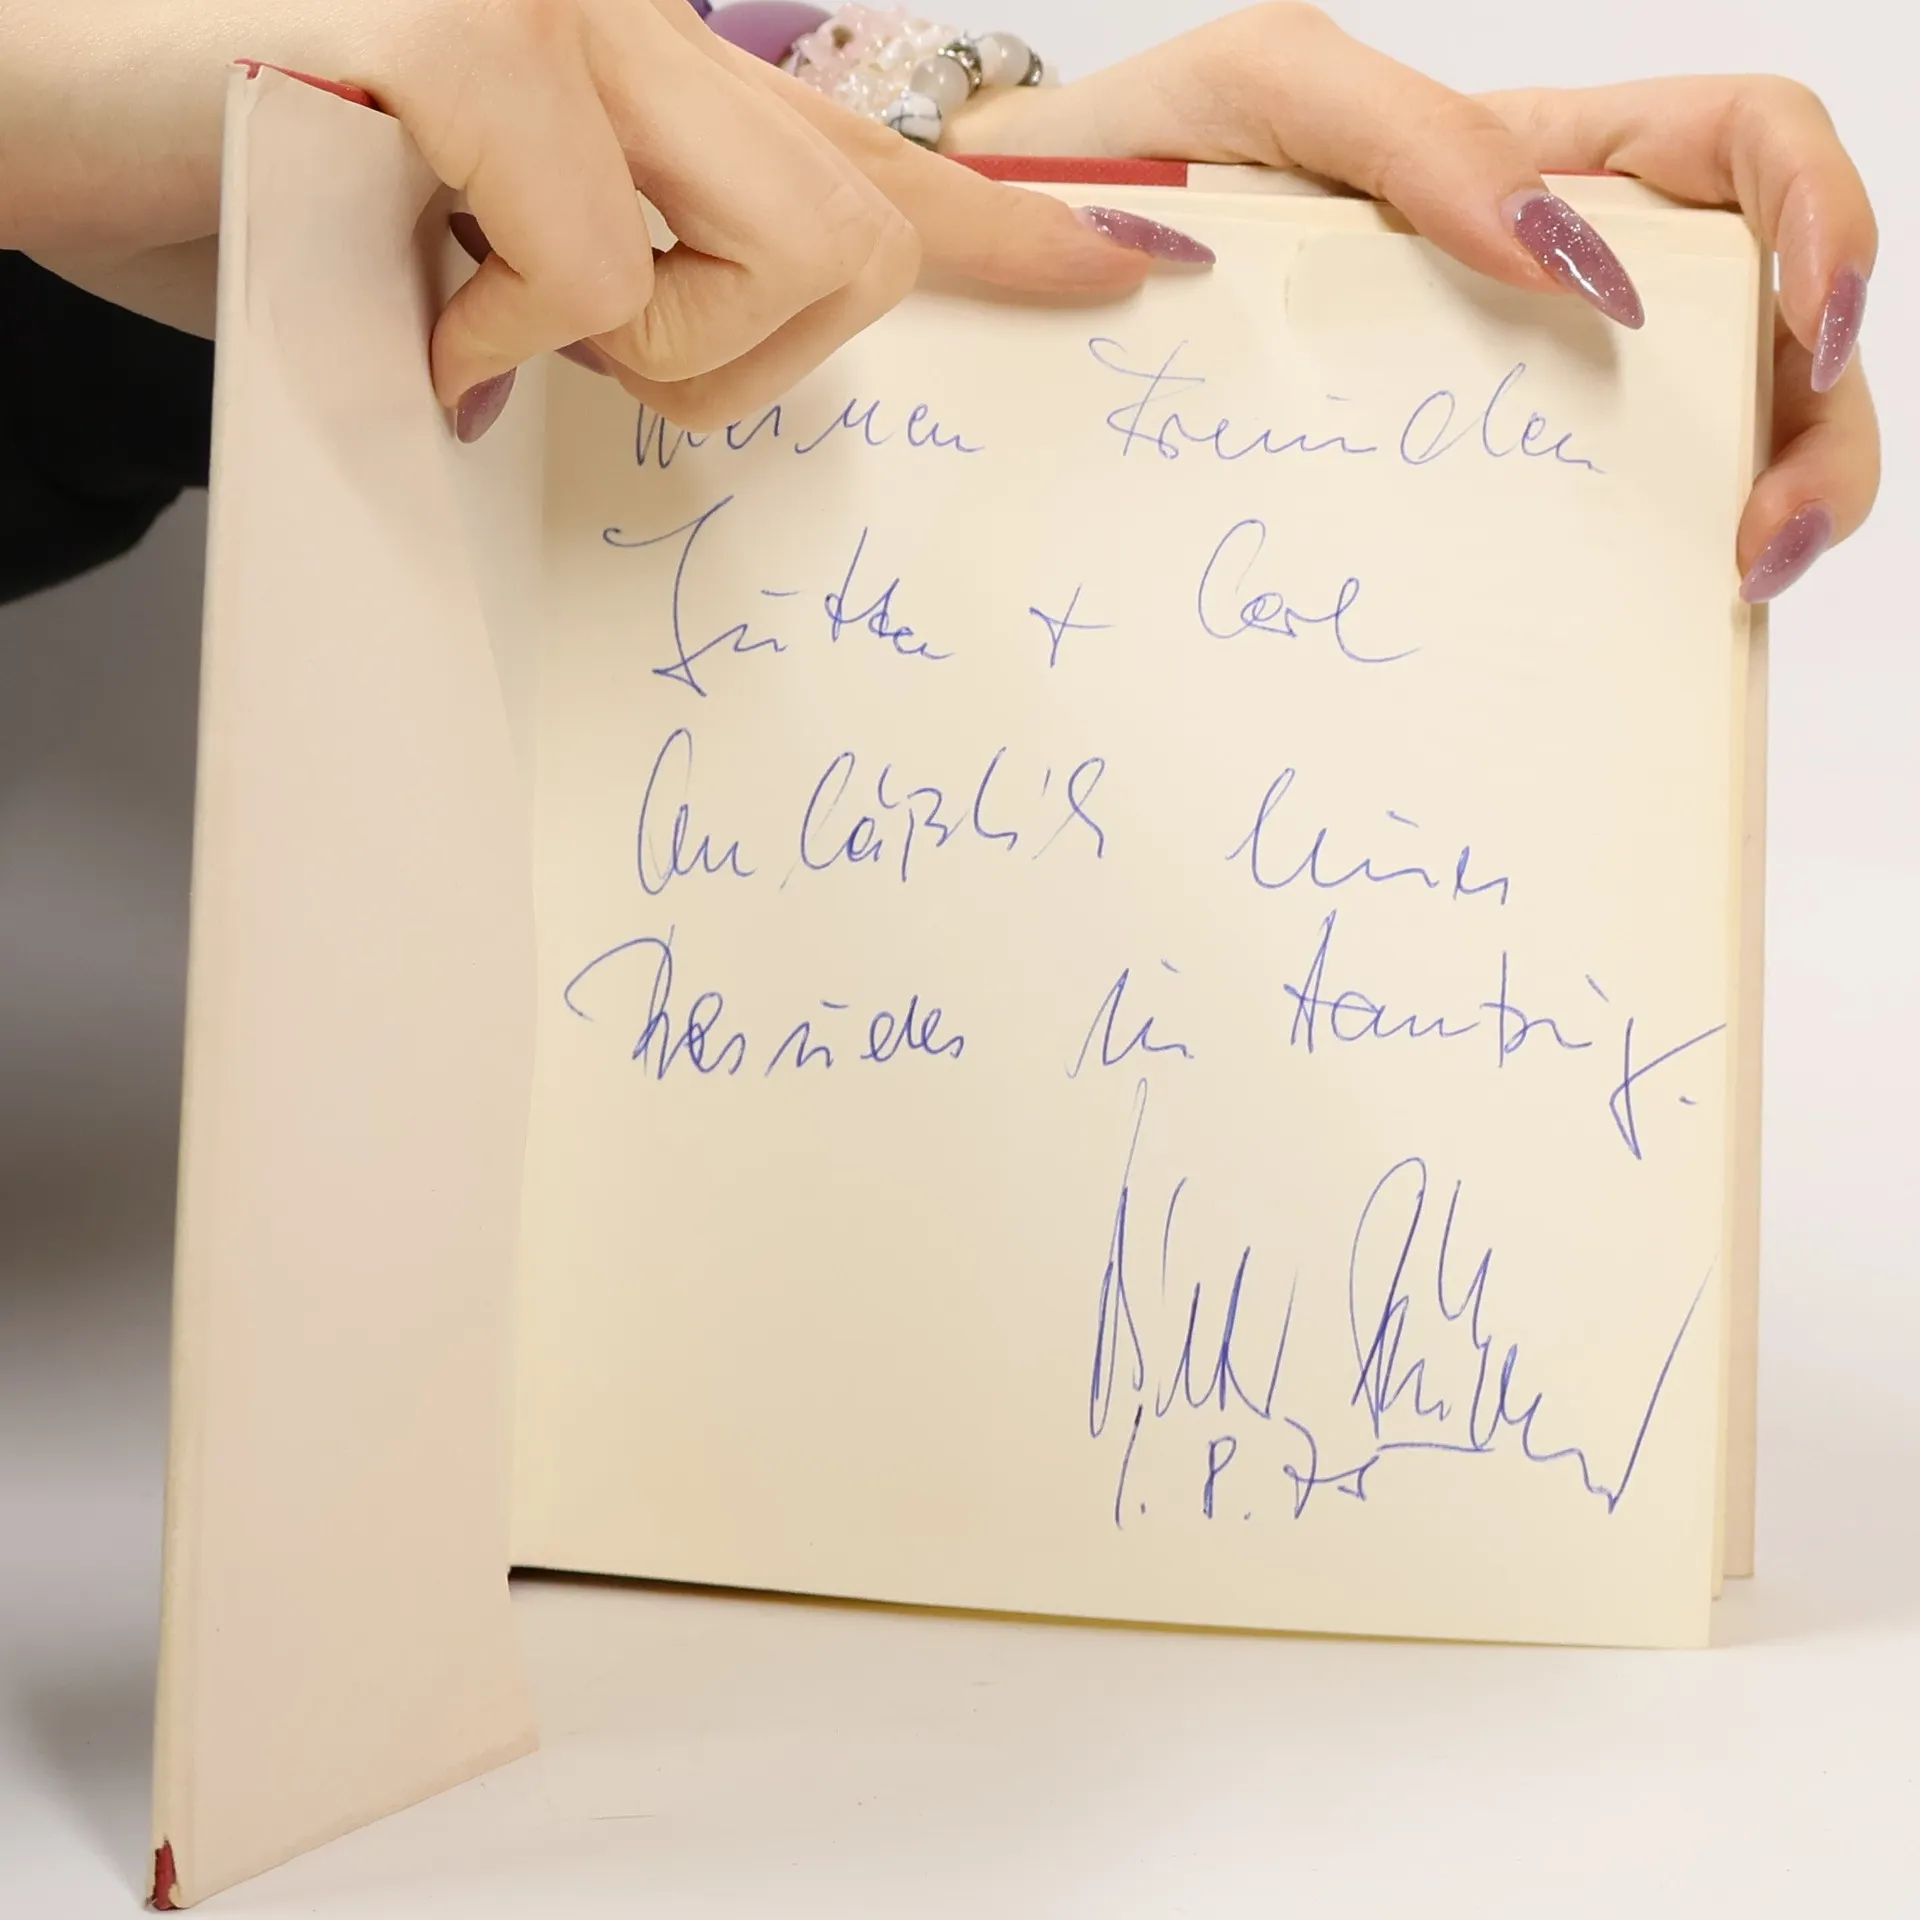 Meinen Freunden
Jutta + Carl
Anläßlich eines
Besuches in Hamburg.
1. 8. 75